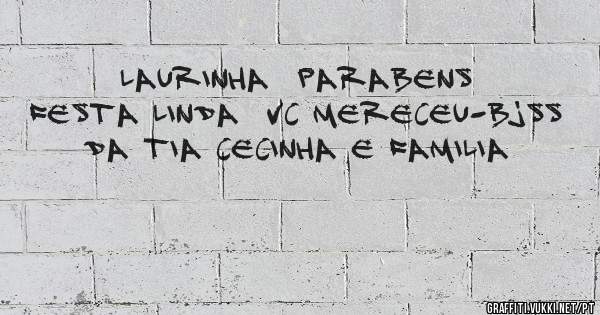 LAURINHA PARABENS
FESTA LINDA VC MERECEU-BJSS
DA TIA CECINHA E FAMILIA
GRAFFITI.VUKKI.NET/PT